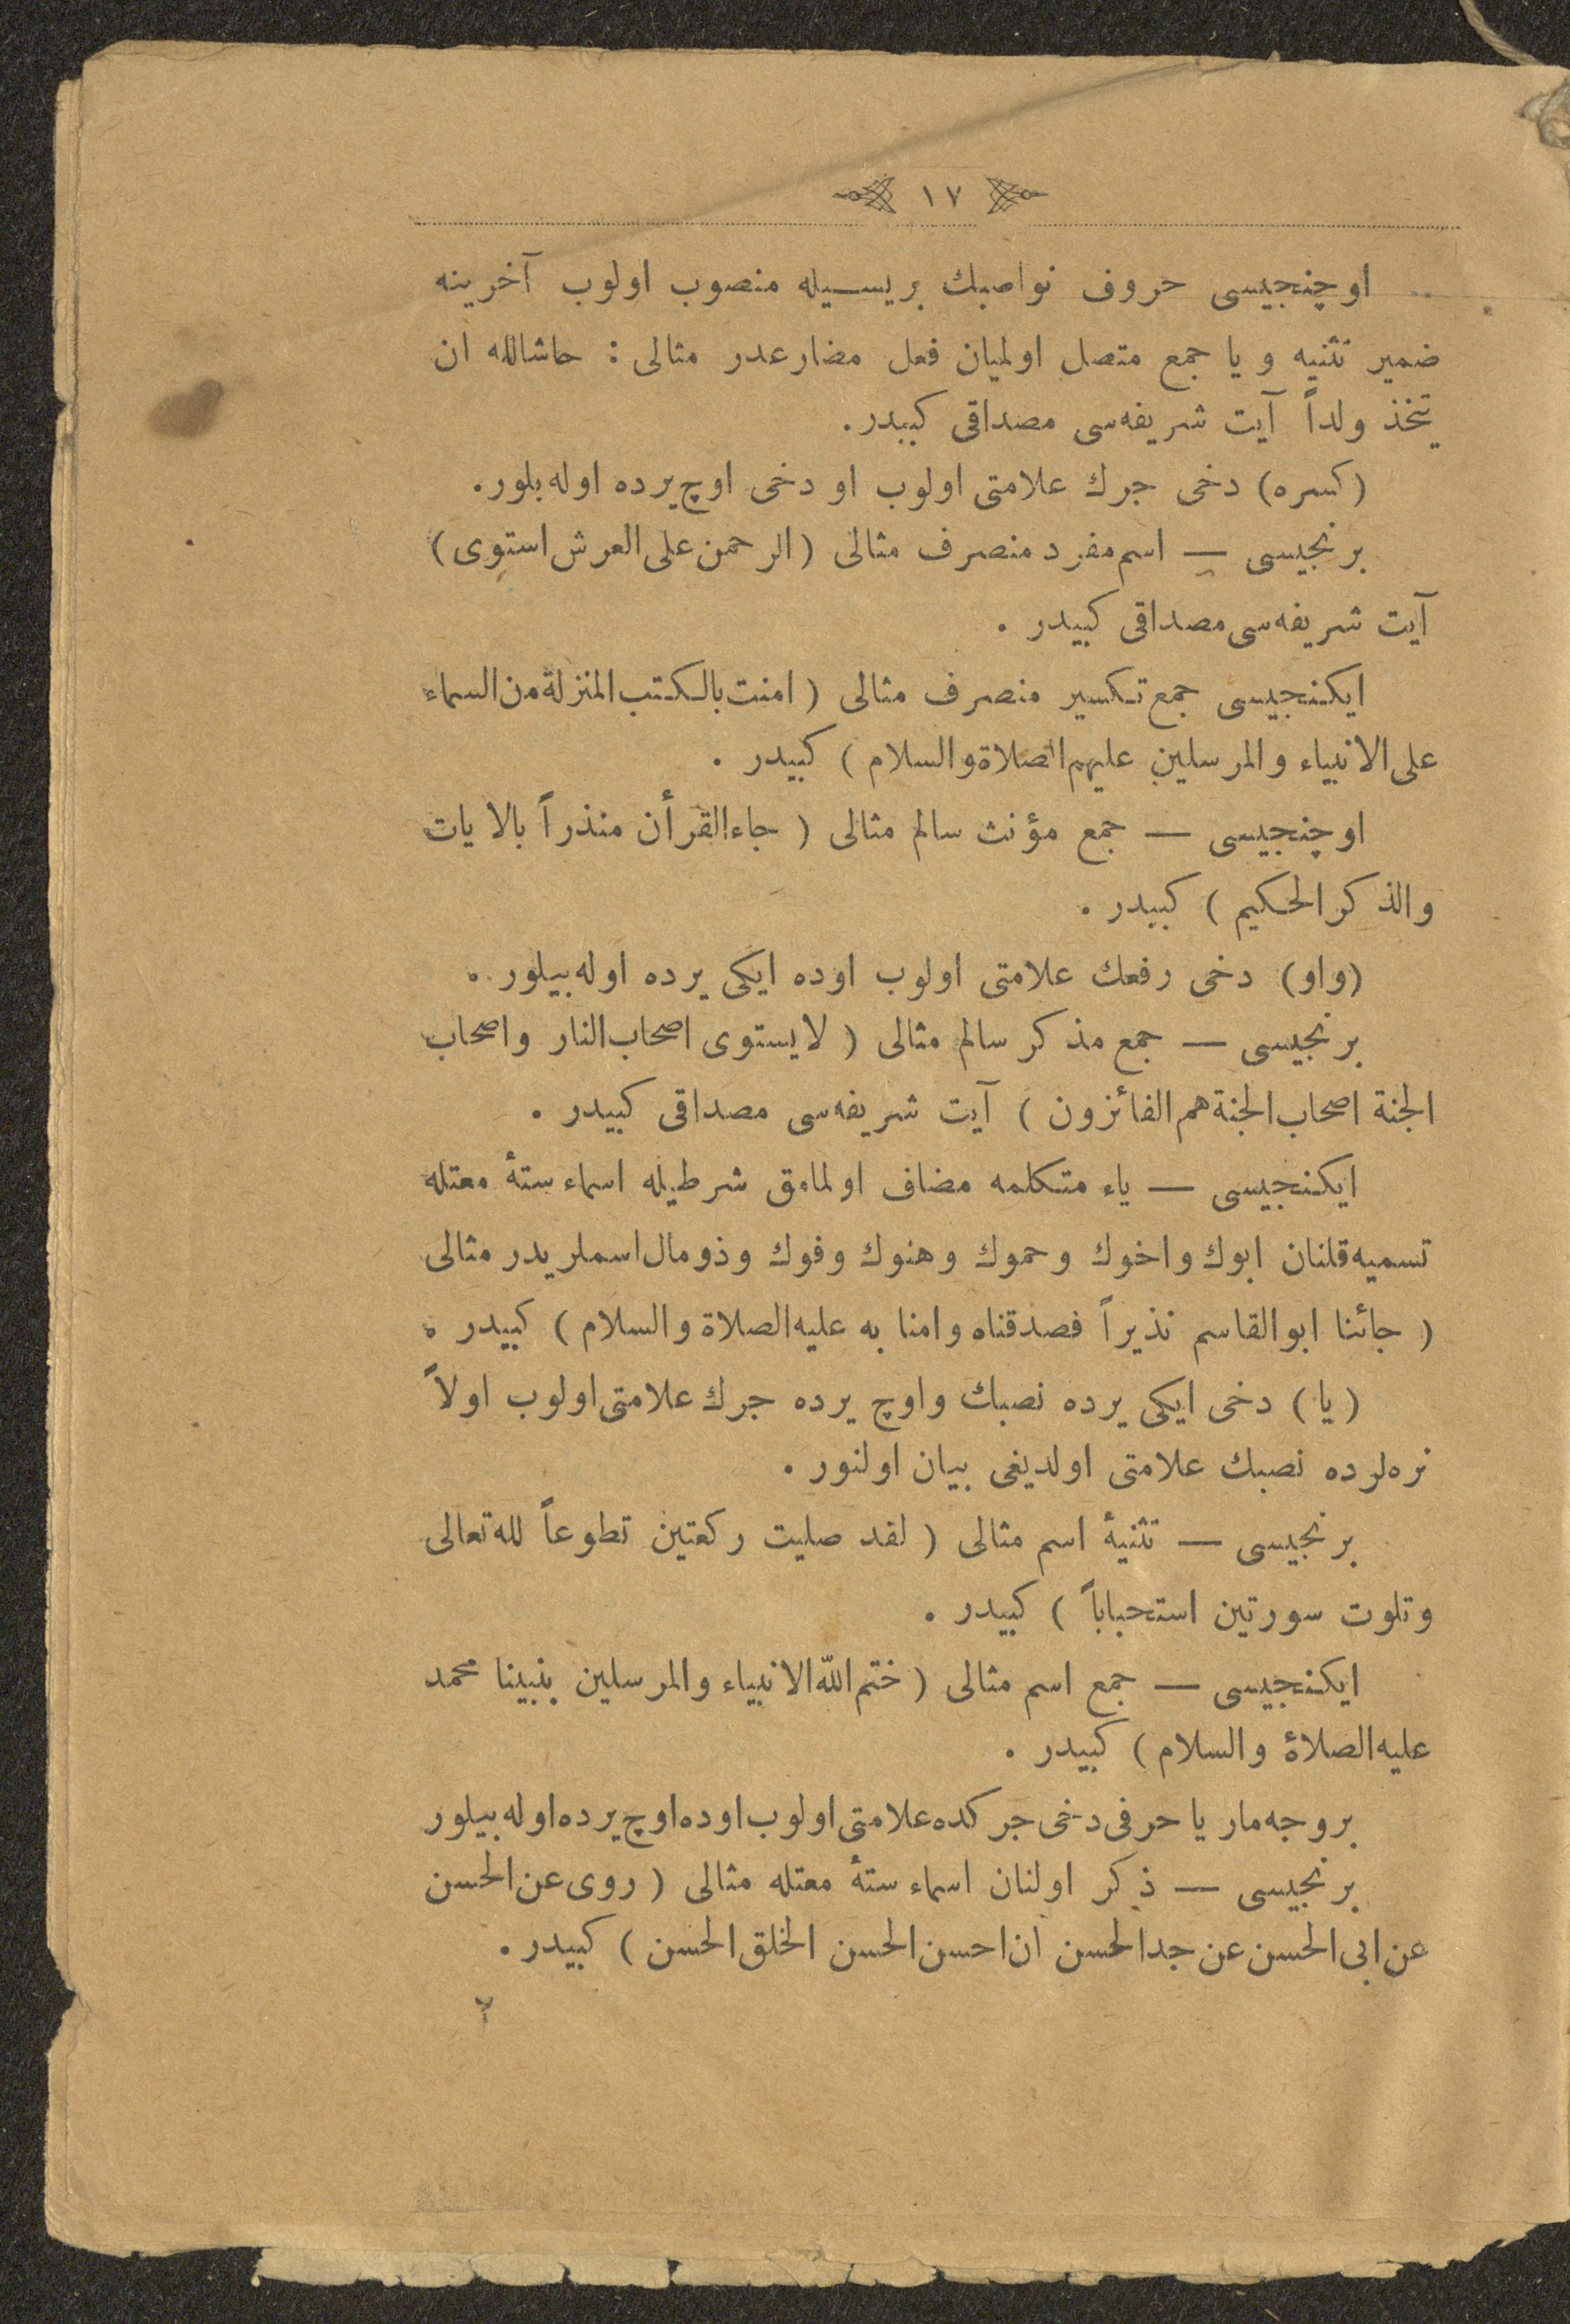 ١٧
اوچنجیسی حروف نواصبك بریسیله منصوب اولوب آخرینه
ضمیر تثنیه و یا جمع متصل اولمیان فعل مضارعدر مثالی : حاشالله ان
یتخذ ولداً آیت شریفه‌سی مصداقی كبیدر.
(كسره) دخی جرك علامتی اولوب او دخی اوچ یرده اوله بلور.
برنجیسی — اسم مفرد منصرف مثالی (الرحمن علی العرش استوی)
آیت شریفه‌سی مصداقی كبیدر .
ایكنجیسی جمع تكسیر منصرف مثالی ( امنت بالكتب المنزلة من السماء
علی الانبیاء والمرسلین علیهم الصلاة والسلام ) كبیدر .
اوچنجیسی — جمع مؤنث سالم مثالی ( جاء القرأن منذراً بالایات
والذكر الحكیم ) كبیدر .
(واو) دخی رفعك علامتی اولوب اوده ایكی یرده اوله بیلور .
برنجیسی — جمع مذكر سالم مثالی ( لایستوی اصحاب النار واصحاب
الجنة اصحاب الجنة هم الفائزون ) آیت شریفه‌سی مصداقی كبیدر .
ایكنجیسی — یاء متكلمه مضاف اولمامق شرطیله اسماء ستهٔ معتله
تسمیه قلنان ابوك واخوك وحموك وهنوك وفوك وذومال اسملریدر مثالی
( جائنا ابوالقاسم نذیراً فصدقناه وامنا به علیه الصلاة والسلام ) كبیدر .
(یا) دخی ایكی یرده نصبك واوچ یرده جرك علامتی اولوب اولاً
نره‌لرده نصبك علامتی اولدیغی بیان اولنور .
برنجیسی — تثنیهٔ اسم مثالی ( لقد صلیت ركعتین تطوعاً لله تعالی
وتلوت سورتین استحباباً ) كبیدر .
ایكنجیسی — جمع اسم مثالی ( ختم اللّه الانبیاء والمرسلین بنبینا محمد
علیه الصلاة والسلام ) كبیدر .
بروجه مار یا حرفی دخی جركده علامتی اولوب اوده اوچ یرده اوله بیلور
برنجیسی — ذكر اولنان اسماء ستهٔ معتله مثالی ( روی عن الحسن
عن ابی الحسن عن جد الحسن ان احسن الحسن الخلق الحسن ) كبیدر .
٢